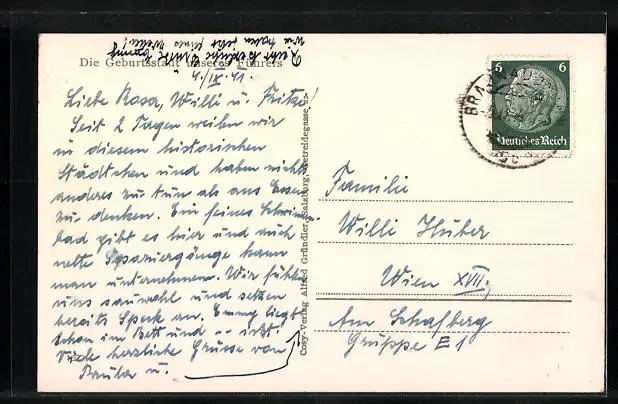 Die Geburtsstadt unseres Führers
Liebe Rosa, Willi u. Fritzi!
Seit 2 Tagen weilen wir
in diesem historischen
Städtchen und haben nichts
anderes zu tun als ans Essen
zu denken. Ein feines Schwimm-
bad gibt es hier und auch
nette Spaziergänge kann
man unternehmen. Wir fühlen
uns sauwohl und setzen
bereits Speck an. Emmy liegt
schon im Bett und -- ißt.
Viele herzliche Grüsse von
u.
Cosy-Verlag Alfred Gründler, Salzburg, Getreidegasse
6 6
Deutsches Reich
BRAUNAU
Familie
Willi Huber
Wien XVII.
Am Schafberg
Gruppe E 1